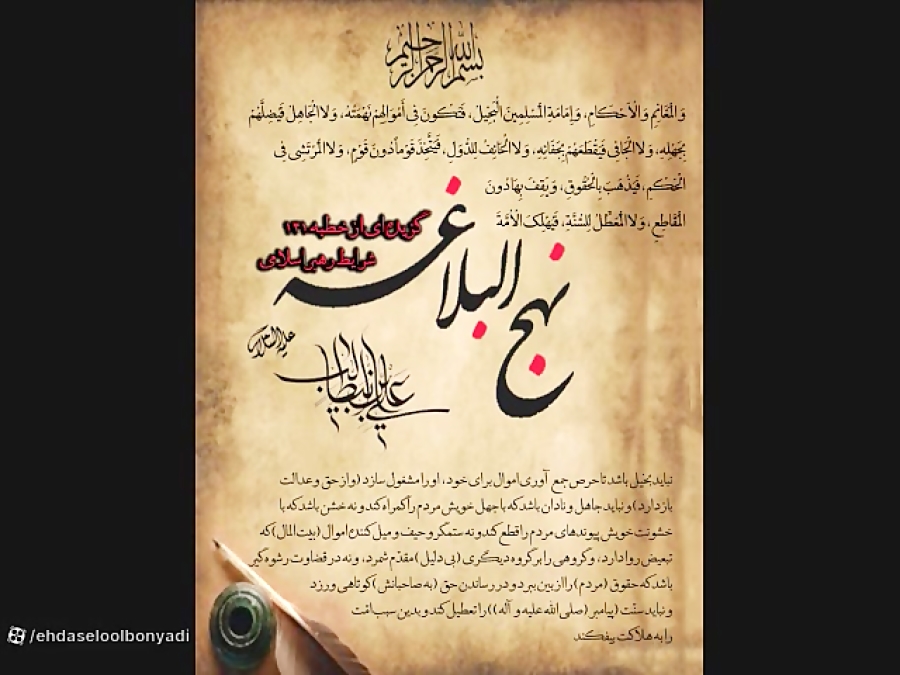 بسم الله الرحمن الرحیم
وَالْمَغَانِمِ وَالْأَحْكَامِ، وَإِمَامَةِ الْمُسْلِمِينَ الْبَخِيلُ، فَتَكُونَ فِي أَمْوَالِهِمْ نَهْمَتُهُ، وَلَا الْجَاهِلُ فَيُضِلَّهُمْ
بِجَهْلِهِ، وَلَا الْجَافِي فَيَقْطَعَهُمْ بِجَفَائِهِ، وَلَا الْحَائِفُ لِلدُّوَلِ، فَيَتَّخِذَ قَوْماً دُونَ قَوْمٍ، وَلَا الْمُرْتَشِي فِي
الْحُكْمِ، فَيَذْهَبَ بِالْحُقُوقِ، وَيَقِفَ بِهَا دُونَ
الْمَقَاطِعِ، وَلَا الْمُعَطِّلُ لِلسُّنَّةِ، فَيُهْلِكَ الْأُمَّةَ
گزیده‌ای از خطبه ۱۳۱
شرایط رهبر اسلامی
نهج البلاغه
علی بن ابیطالب
علیه السلام
نباید بخیل باشد تا حرص جمع آوری اموال برای خود، او را مشغول سازد (و از حق و عدالت
بازدارد) و نباید جاهل و نادان باشد که با جهل خویش مردم را گمراه کند و نه خشن باشد که با
خشونت خویش پیوندهای مردم را قطع کند و نه ستمگر و حیف و میل کننده اموال (بیت المال) که
تبعیض روا دارد، و گروهی را بر گروه دیگری (بی دلیل) مقدّم شمرد، و نه در قضاوت رشوه گیر
باشد که حقوق (مردم) را از بین ببرد و در رساندن حق (به صاحبانش) کوتاهی ورزد
و نباید سنّت (پیامبر (صلی الله علیه و آله)) را تعطیل کند و بدین سبب امّت
را به هلاکت بیفکند
/ehdaseloolbonyadi